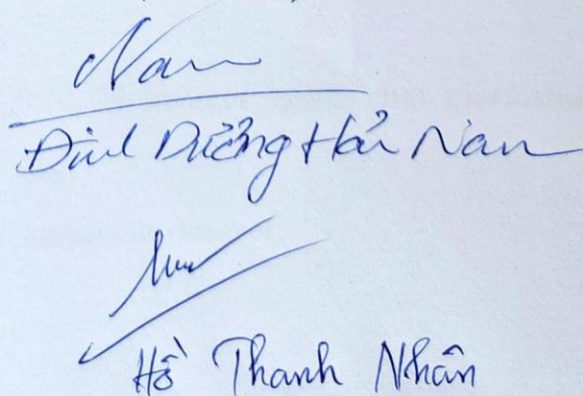 Nam
Đinh Dưỡng Hải Nam
Hồ Thanh Nhân